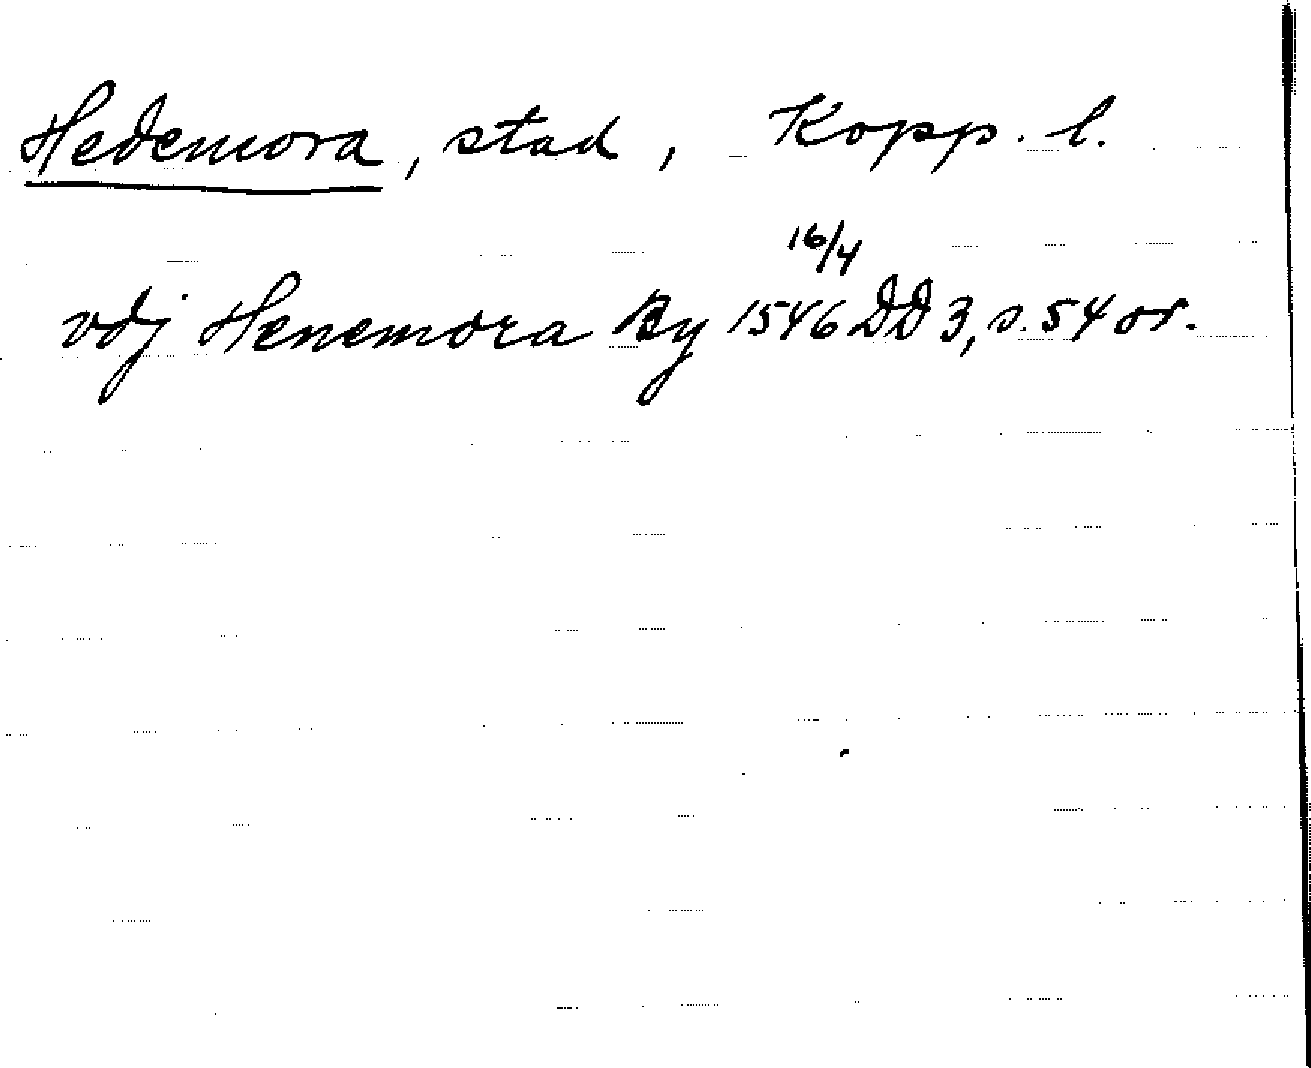 Hedemora, stad, Kopp. l.
16/4
vdj Henemora By 1546 DD 3, s. 54 or.